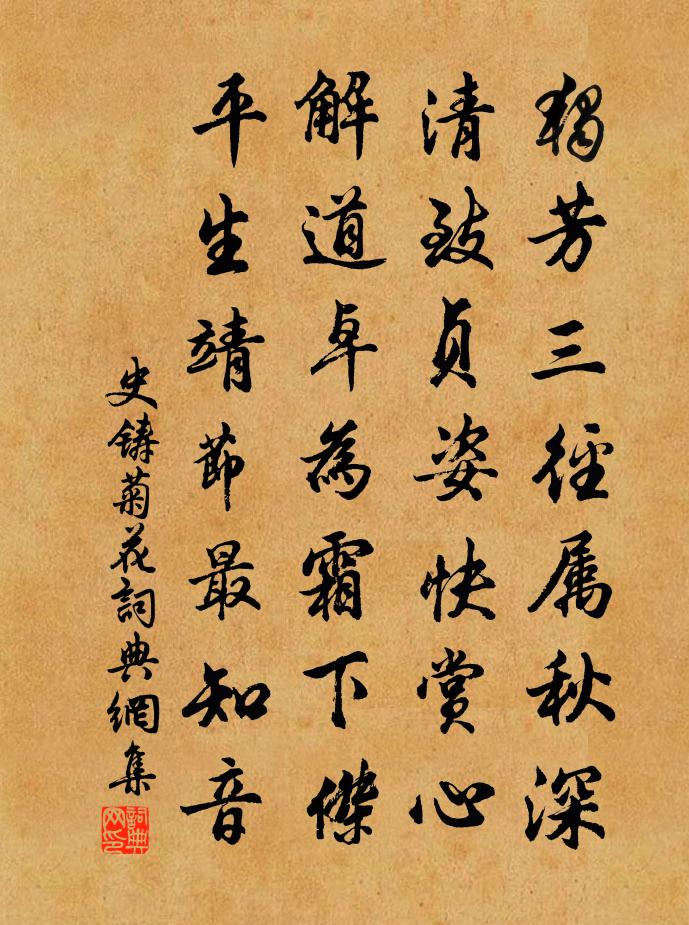 獨芳三徑属秋深
清致貞姿快賞心
解道卓為霜下傑
平生靖節最知音
史鑄菊花詞典網集
詞典网印